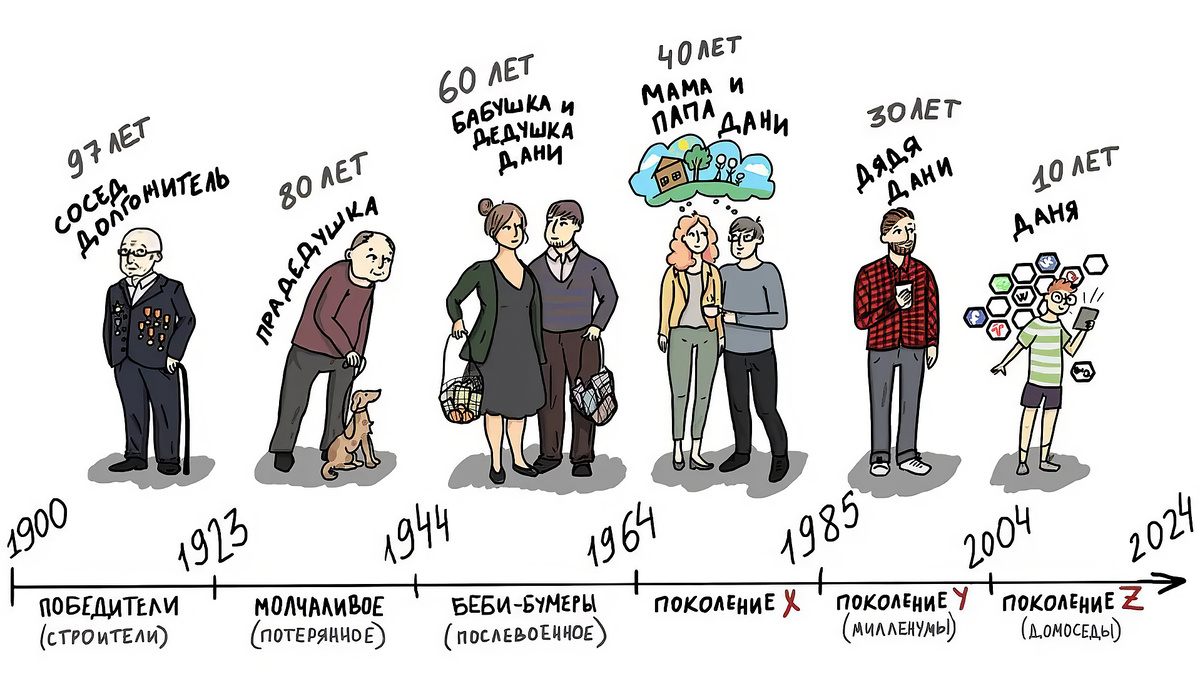 97 ЛЕТ
СОСЕД
ДОЛГОЖИТЕЛЬ
80 ЛЕТ
ПРАДЕДУШКА
60 ЛЕТ
БАБУШКА И
ДЕДУШКА
ДАНИ
40 ЛЕТ
МАМА И
ПАПА
ДАНИ
30 ЛЕТ
ДЯДЯ
ДАНИ
10 ЛЕТ
ДАНЯ
W
f
1900
1923
1944
1964
1985
2004
2024
ПОБЕДИТЕЛИ
(СТРОИТЕЛИ)
МОЛЧАЛИВОЕ
(ПОТЕРЯННОЕ)
БЕБИ-БУМЕРЫ
(ПОСЛЕВОЕННОЕ)
ПОКОЛЕНИЕ X
ПОКОЛЕНИЕ Y
(МИЛЛЕНУМЫ)
ПОКОЛЕНИЕ Z
(ДОМОСЕДЫ)